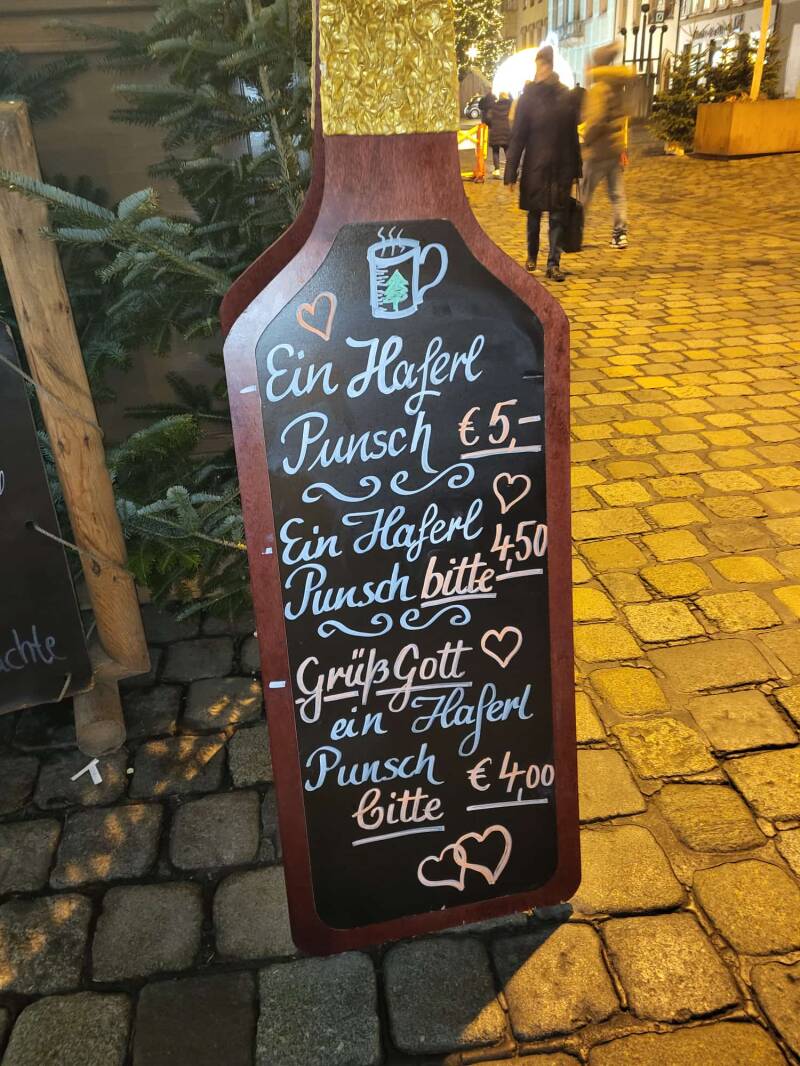 Ein Haferl
Punsch € 5,-
Ein Haferl
Punsch bitte 4,50
Grüß Gott
ein Haferl
Punsch € 4,00
bitte